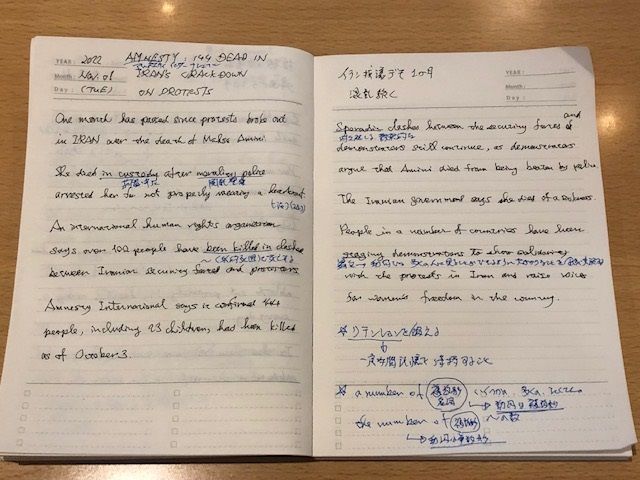 YEAR: 2022
Month: Nov. 01
Day: (TUE)
AMNESTY: 144 DEAD IN
IRAN'S CRACKDOWN
ON PROTESTS
One month has passed since protests broke out
in IRAN over the death of Mahsa Amini.
She died in custody after morality police
arrested her for not properly wearing a headscarf.
An international human rights organization
says over 100 people have been killed in clashes
between Iranian security forces and protesters.
Amnesty International says it confirmed 144
people, including 23 children, had been killed
as of October 3.
イラン抗議デモ 1ヶ月
混乱続く
YEAR:
Month:
Day:
Sporadic clashes between the security forces and
demonstrators still continue, as demonstrators
argue that Amini died from being beaten by police.
The Iranian government says she died of a sickness.
People in a number of countries have been
staging demonstrations to show solidarity
with the protests in Iran and raise voice
for women's freedom in the country.
☆ リテンションを鍛える
一定時間記憶で保持すること
☆ a number of 複数形名詞 いくつかの、多くの
動詞は複数形
the number of 複数形 〜の数
動詞は単数形